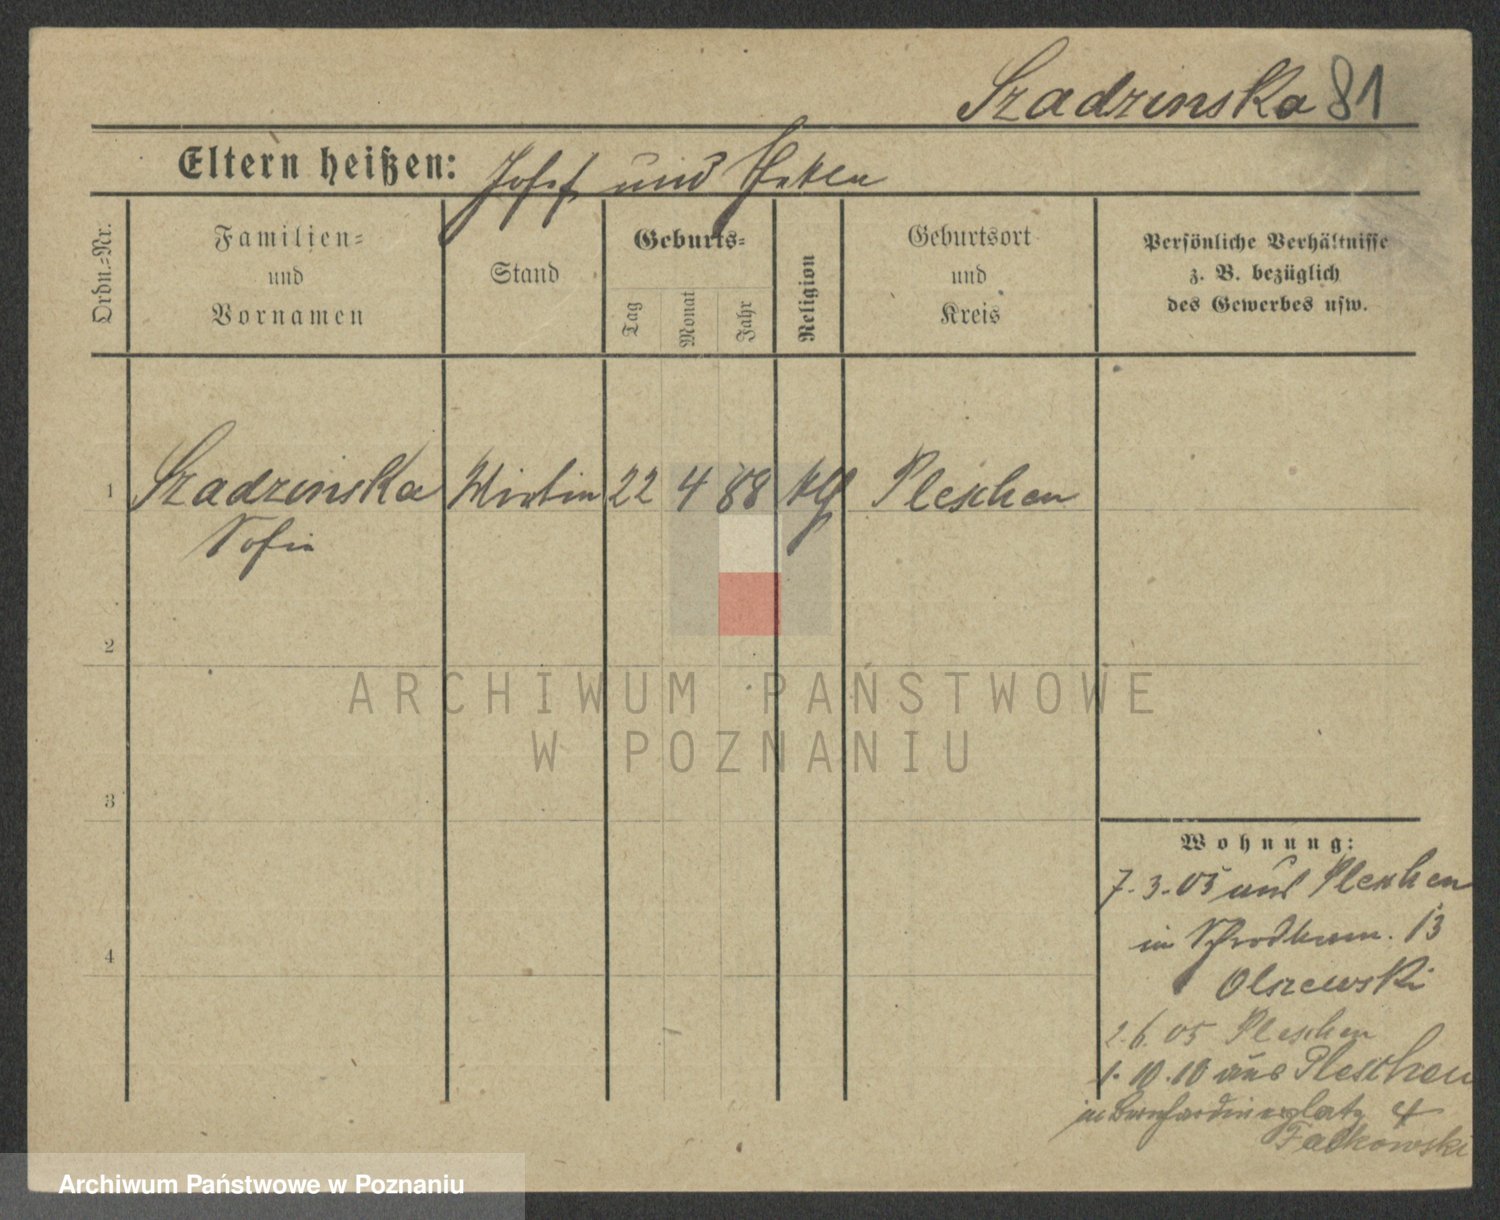 Szadzinska 81
Eltern heißen: Josef und Helen
Ordn.-Nr.
Familien-
und
Vornamen
Stand
Geburts-
Tag
Monat
Jahr
Religion
Geburtsort
und
Kreis
Persönliche Verhältnisse
z. B. bezüglich
des Gewerbes usw.
1 Szadzinska Wirtin 22 4 88 Pleschen
Sofie
2
ARCHIWUM PAŃSTWOWE
W POZNANIU
3
Wohnung:
7.3.05 aus Pleschen
in 13
Olszewski
2.6.05 Pleschen
4
1.10.10 aus Pleschen
in Bernhardinerplatz 4
Falkowski
Archiwum Państwowe w Poznaniu